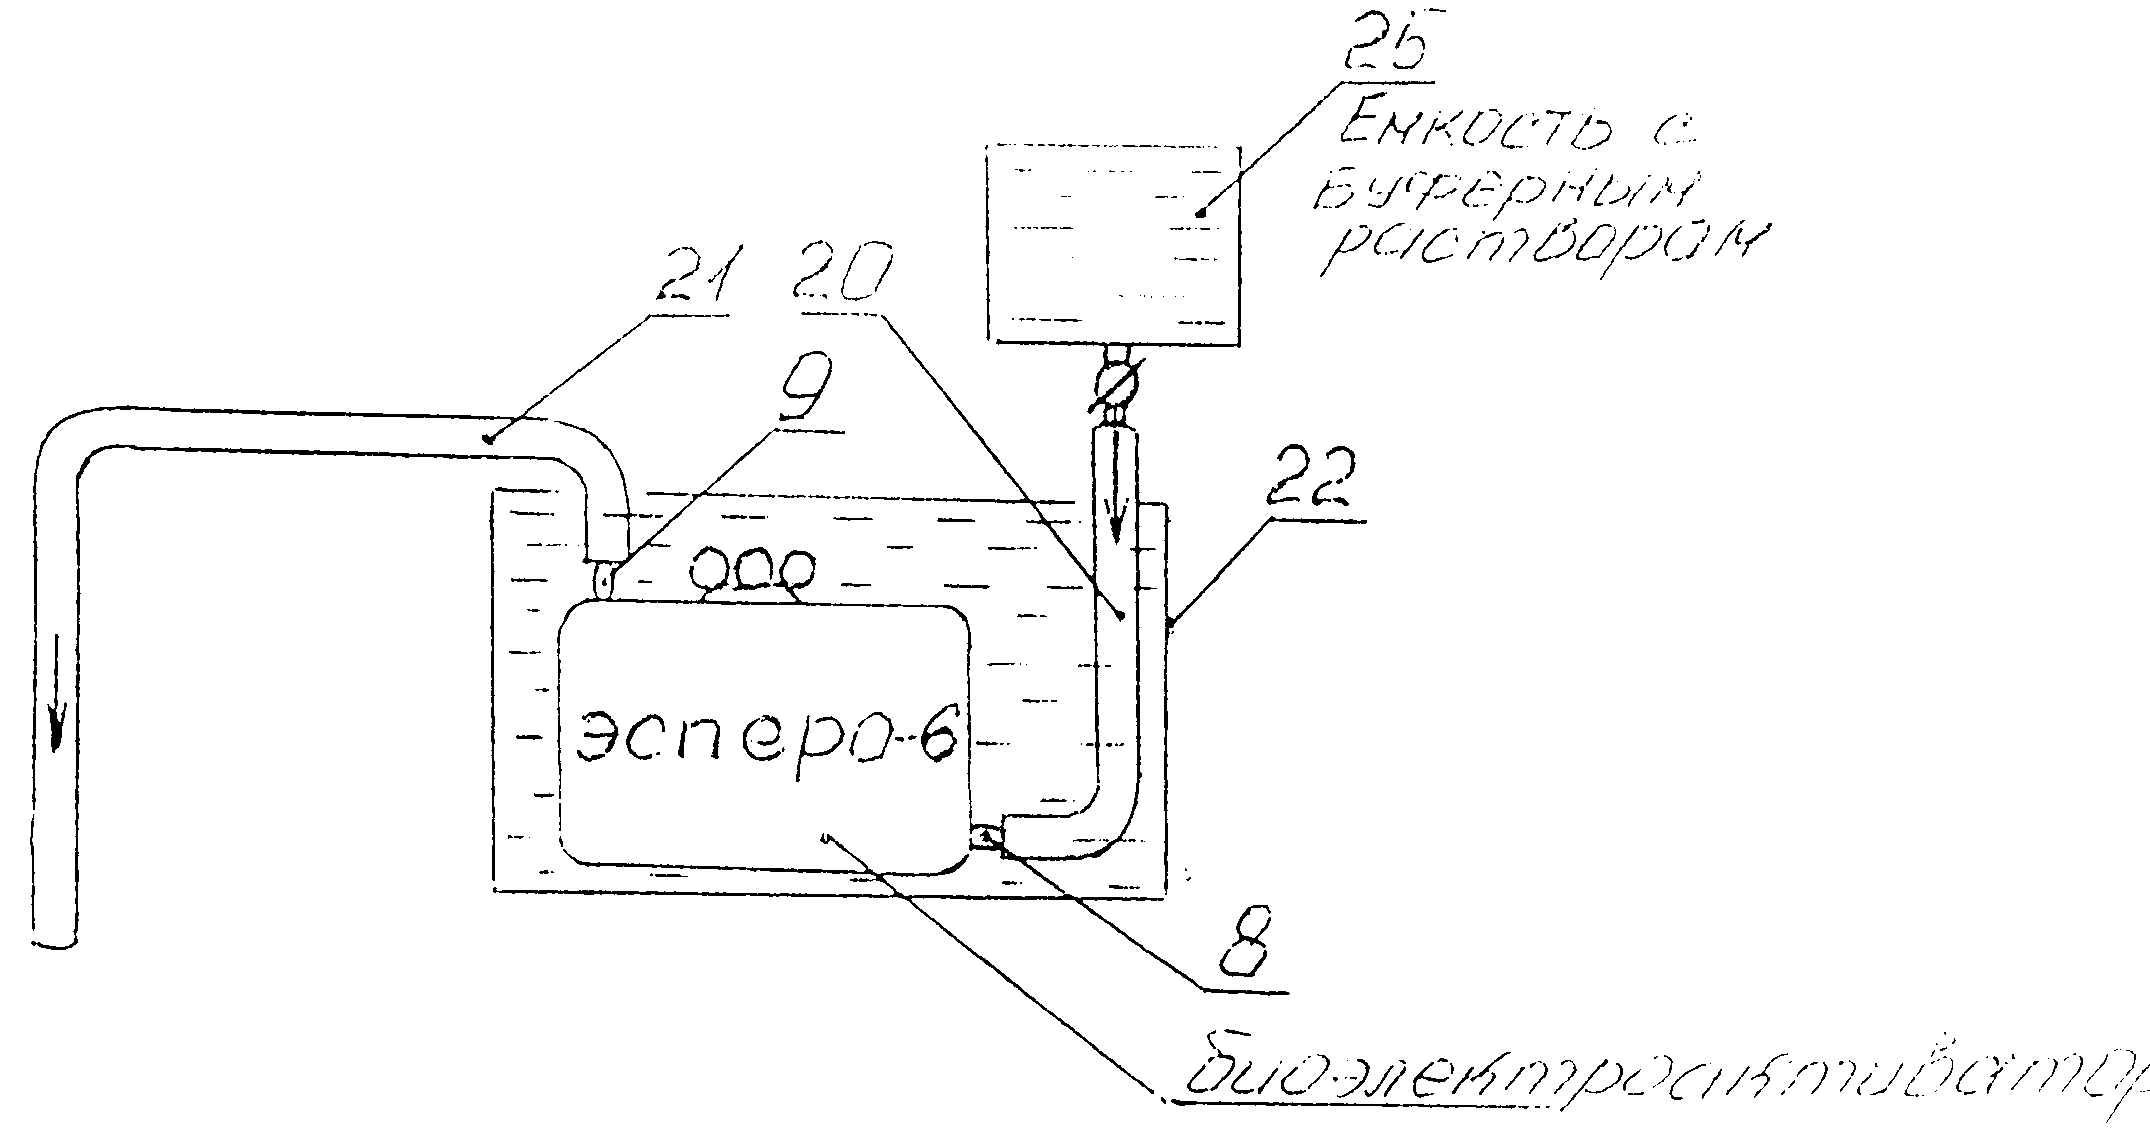 25
Емкость с
Буферным
раствором
21
20
9
22
эсперо-6
8
биоэлектроактиватор